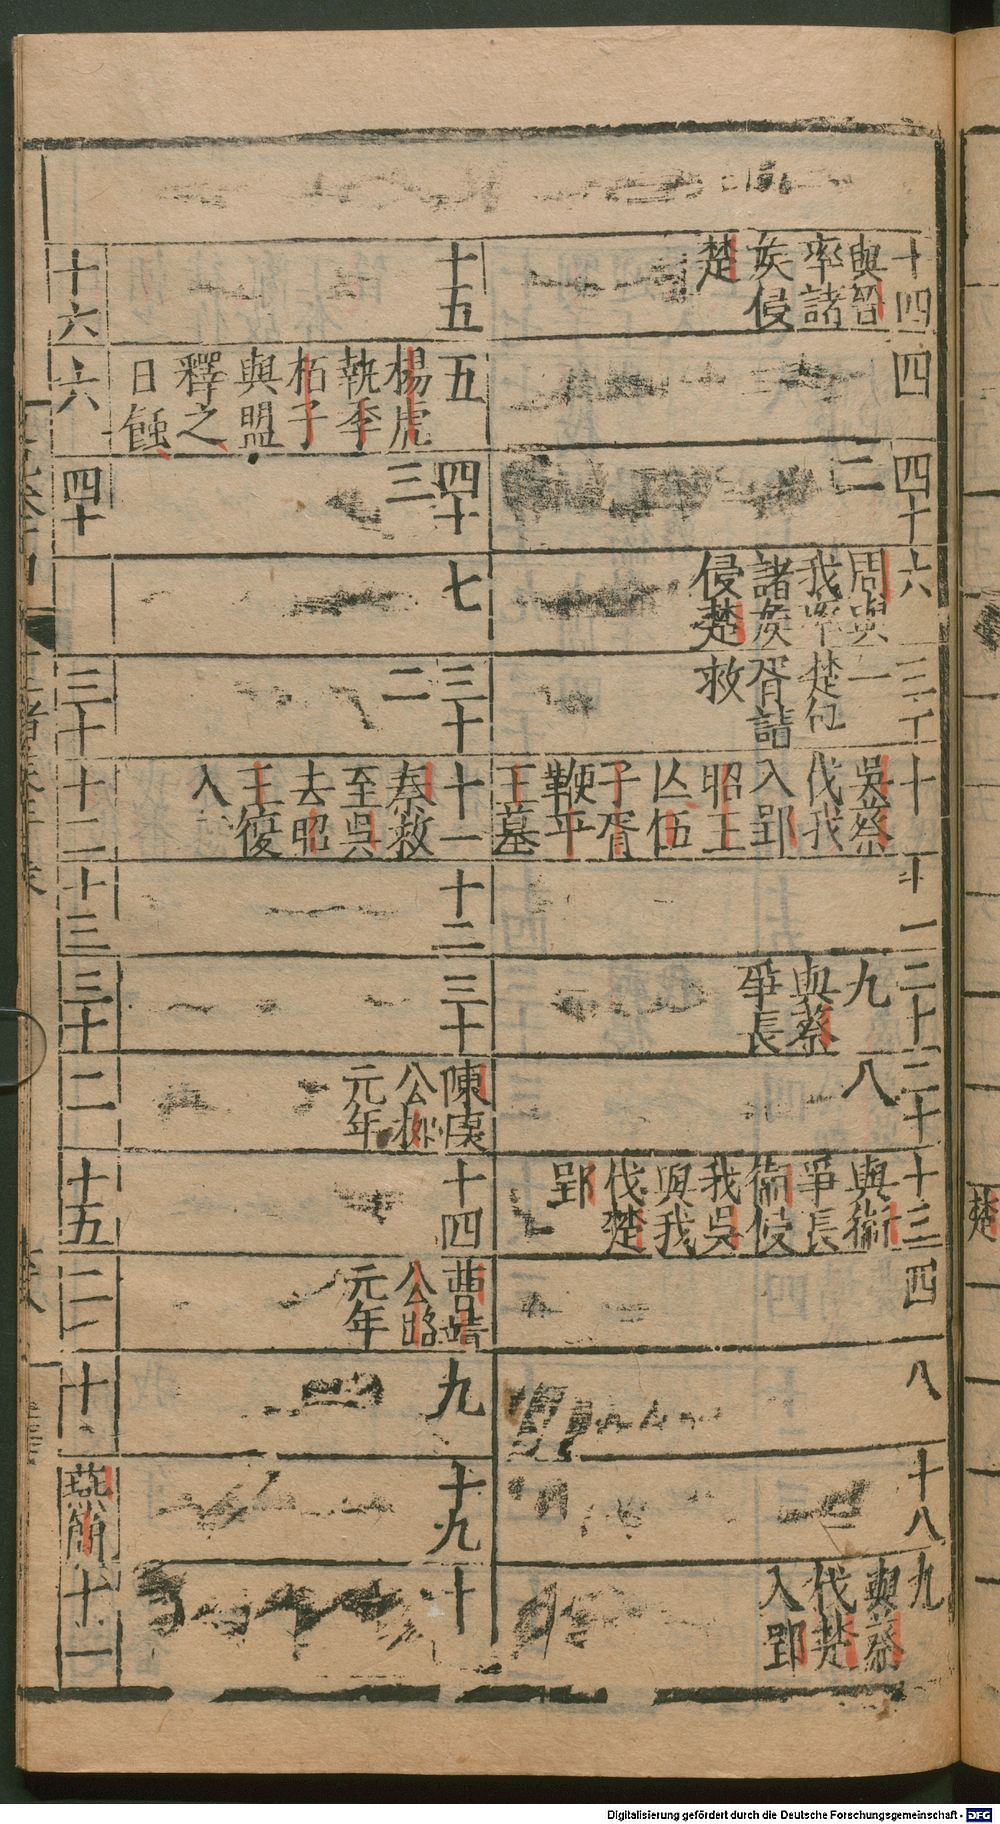 十四
與晉
率諸
侯侵
楚
四
四十
二
六
周與
我率
諸侯
侵楚
三十
一
楚包
胥請
救
十
吳蔡
伐我
入郢
昭王
亡伍
子胥
鞭平
王墓
十一
二十
九
與蔡
爭長
二十
八
十三
與衛
爭長
衛侵
我吳
與我
伐楚
郢
四
八
十八
九
與蔡
伐楚
入郢
十五
五
楊虎
執季
柘子
與盟
釋之
日蝕
四十
三
七
三十
二
十一
秦救
至吳
去昭
王復
入
十二
三十
陳懷
公柳
元年
十四
曹靖
公路
元年
九
十九
十
十六
六
四十
三十
十二
十三
三十
二
十五
二
十
燕簡
十一